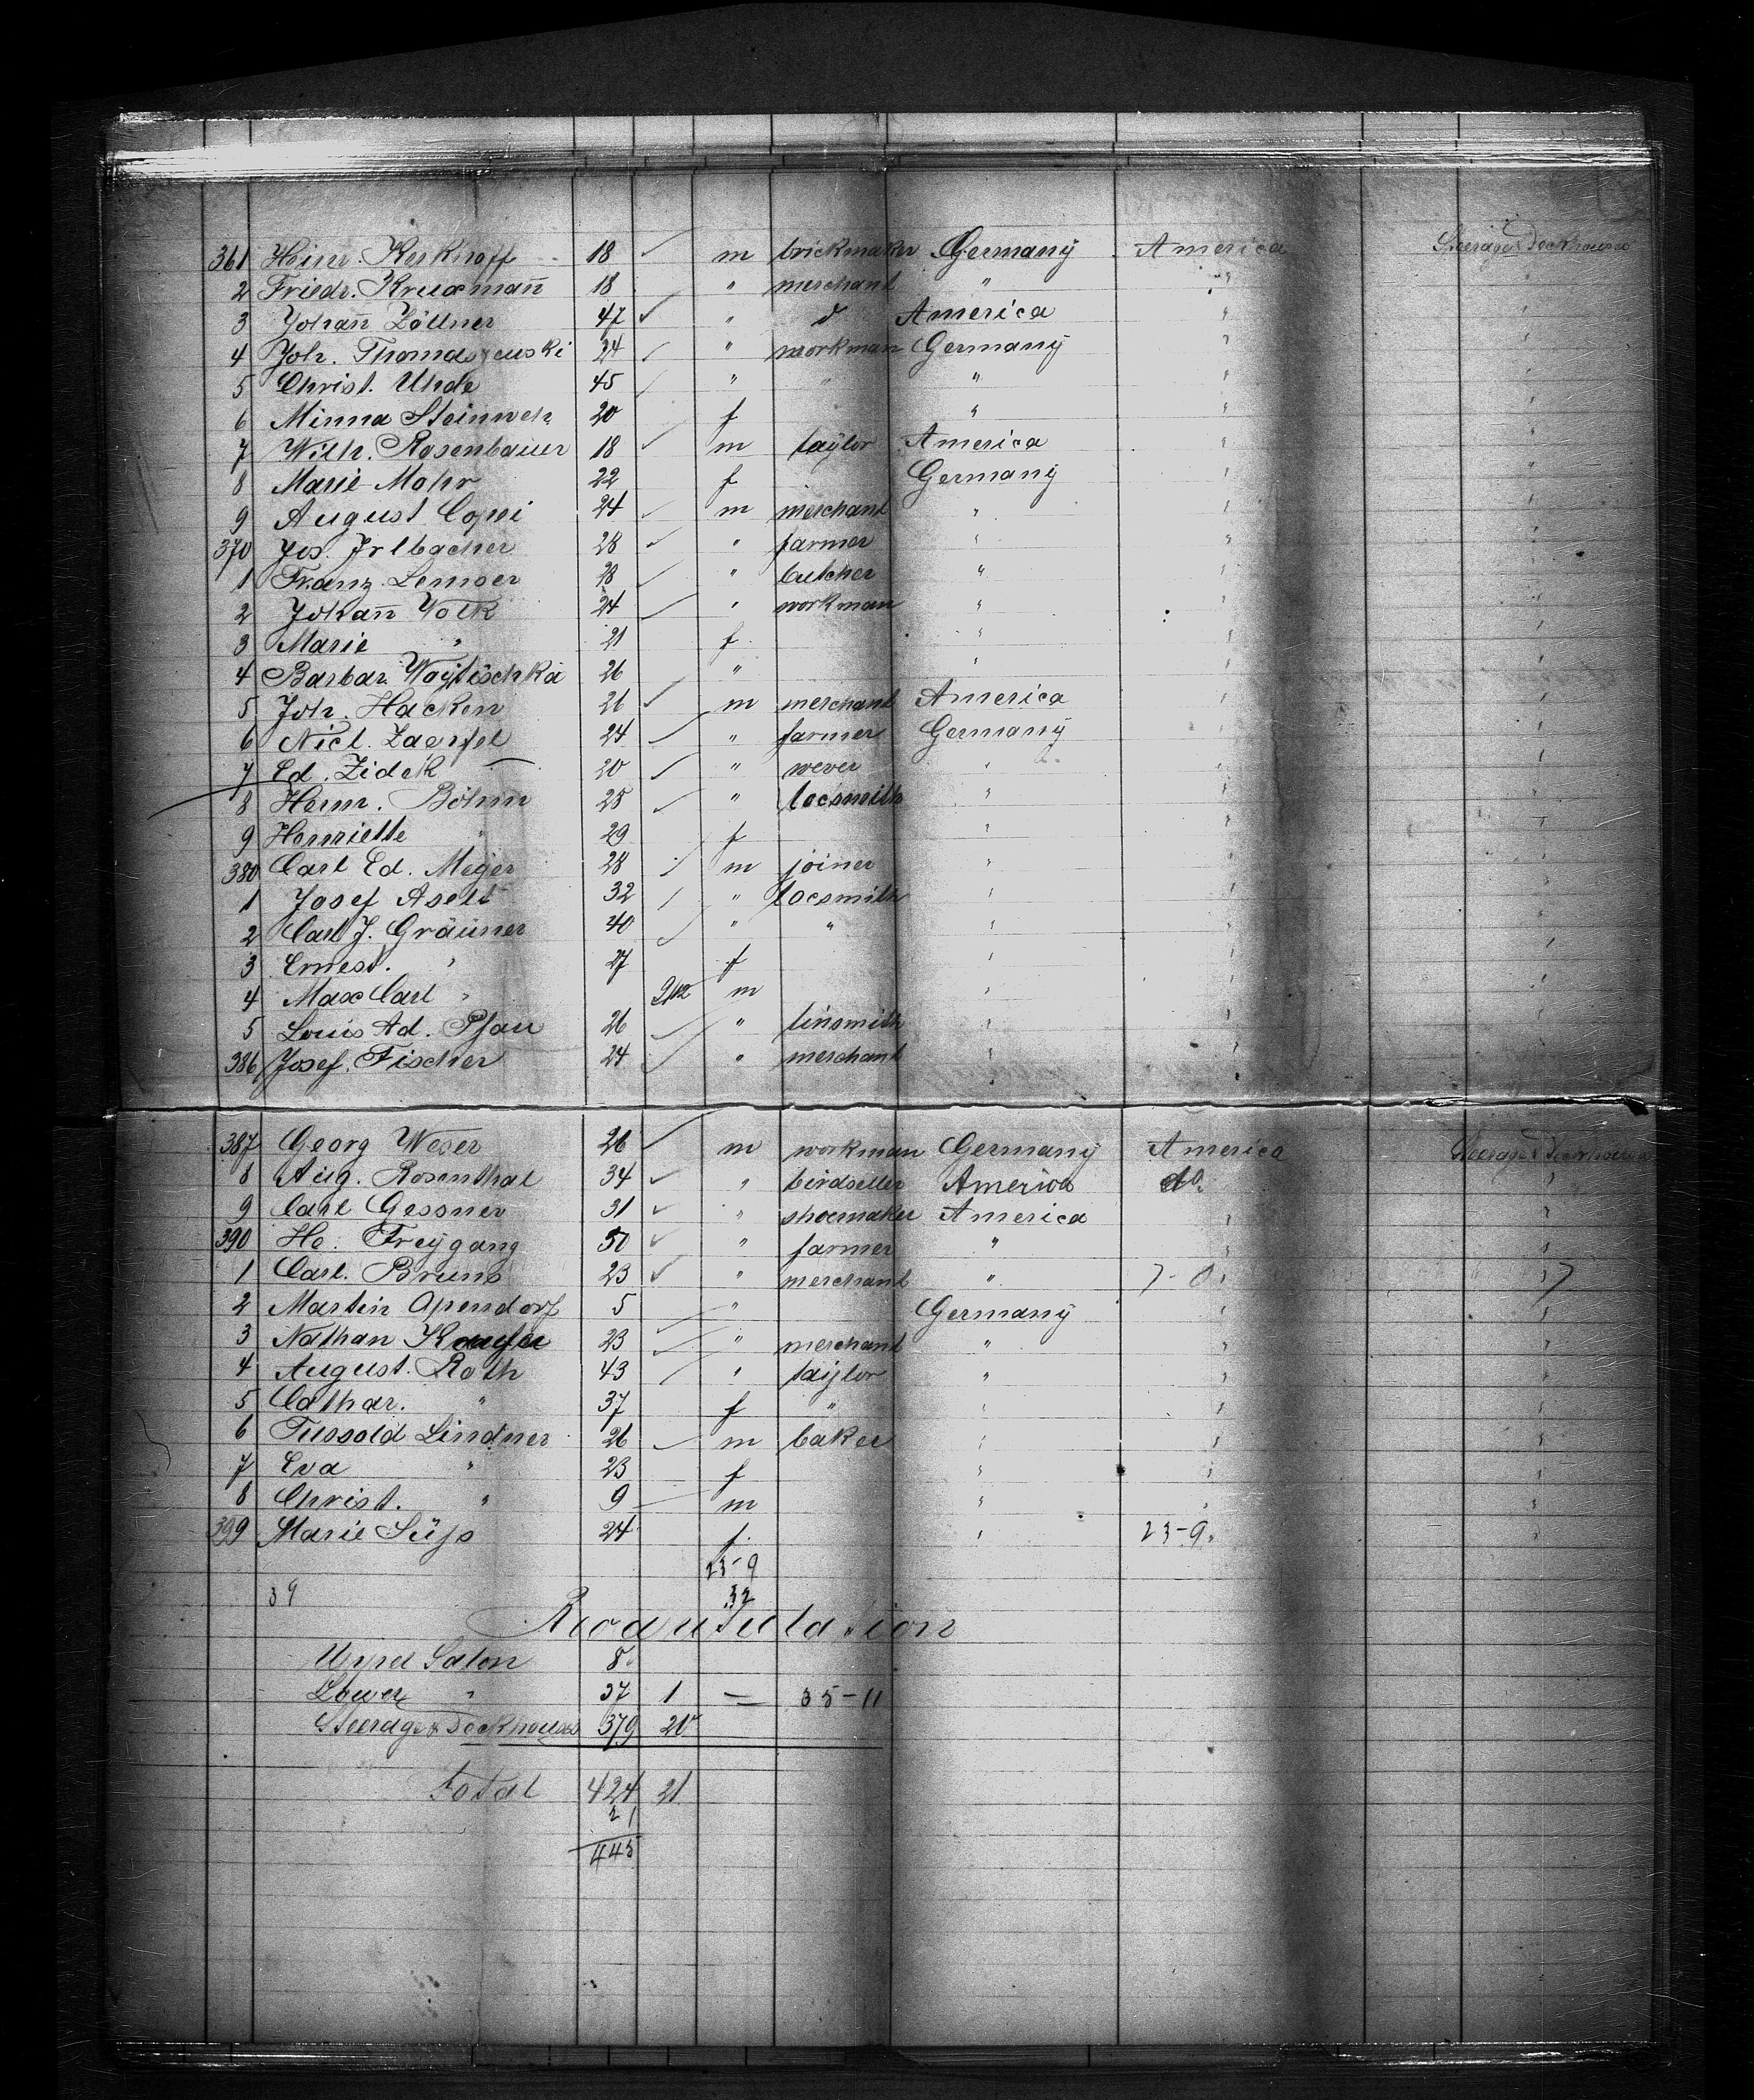 361 Heinr. Kerkhoff 18 m brickmaker Germany America Steerage & Deckhouses
2 Friedr. Kruxmañ 18 " merchant " "
3 Johañ Zöllner 47 " d America " "
4 Joh. Thomaszeuski 24 " workman Germany " "
5 Christ. Uhde 45 " " " " "
6 Minna Steinweh 20 f " " "
7 Wilh. Rosenbauer 18 m taylor America " "
8 Marie Mohr 22 f Germany " "
9 August Coppi 24 m merchant " " "
370 Jos. Irlbacher 28 " farmer " " "
1 Franz Lemser 28 " butcher " " "
2 Johañ Volk 24 " workman " " "
3 Marie " 21 f " " "
4 Barbar. Woytischka 26 " " " "
5 Joh. Hacken 21 m merchant America " "
6 Nicl. Zaepfel 24 " farmer Germany " "
7 Ed. Zidek 20 " wever " " "
8 Herm. Böhm 25 " locsmith " " "
9 Henriette " 29 f " " "
380 Carl Ed. Meyer 28 m joiner " " "
1 Josef Aselt 32 " locsmith " " "
2 Carl J. Gräuner 40 " " " " "
3 Ernest. " 27 f " " "
4 Max Carl " m " " "
5 Louis Ad. Pfau 26 " tinsmith " " "
386 Josef Fischer 24 " merchant " " "
387 Georg Weser 26 m workman Germany America Steerage & Deckhouses
8 Aug. Rosenthal 34 " birdseller America do. "
9 Carl Gessner 31 " shoemaker America " "
390 He. Freygang 50 " farmer " " "
1 Carl. Bruns 23 " merchant " 7-0 "
2 Martin Apendorf 5 " Germany " "
3 Nathan 23 " merchant " " "
4 August. Roth 43 " taylor " " "
5 Cathar. " 37 f " " " "
6 Tussold Lindner 26 m baker " " "
7 Eva " 23 f " " "
8 Christ. " 9 m " " "
399 Marie Süss 24 f " 23-9 "
23-9
39 32
Recapitulation
Upper Salon 8
Lower " 37 1 — 35-11
Steerage & Deckhouses 379 20
total 424 21
21
445